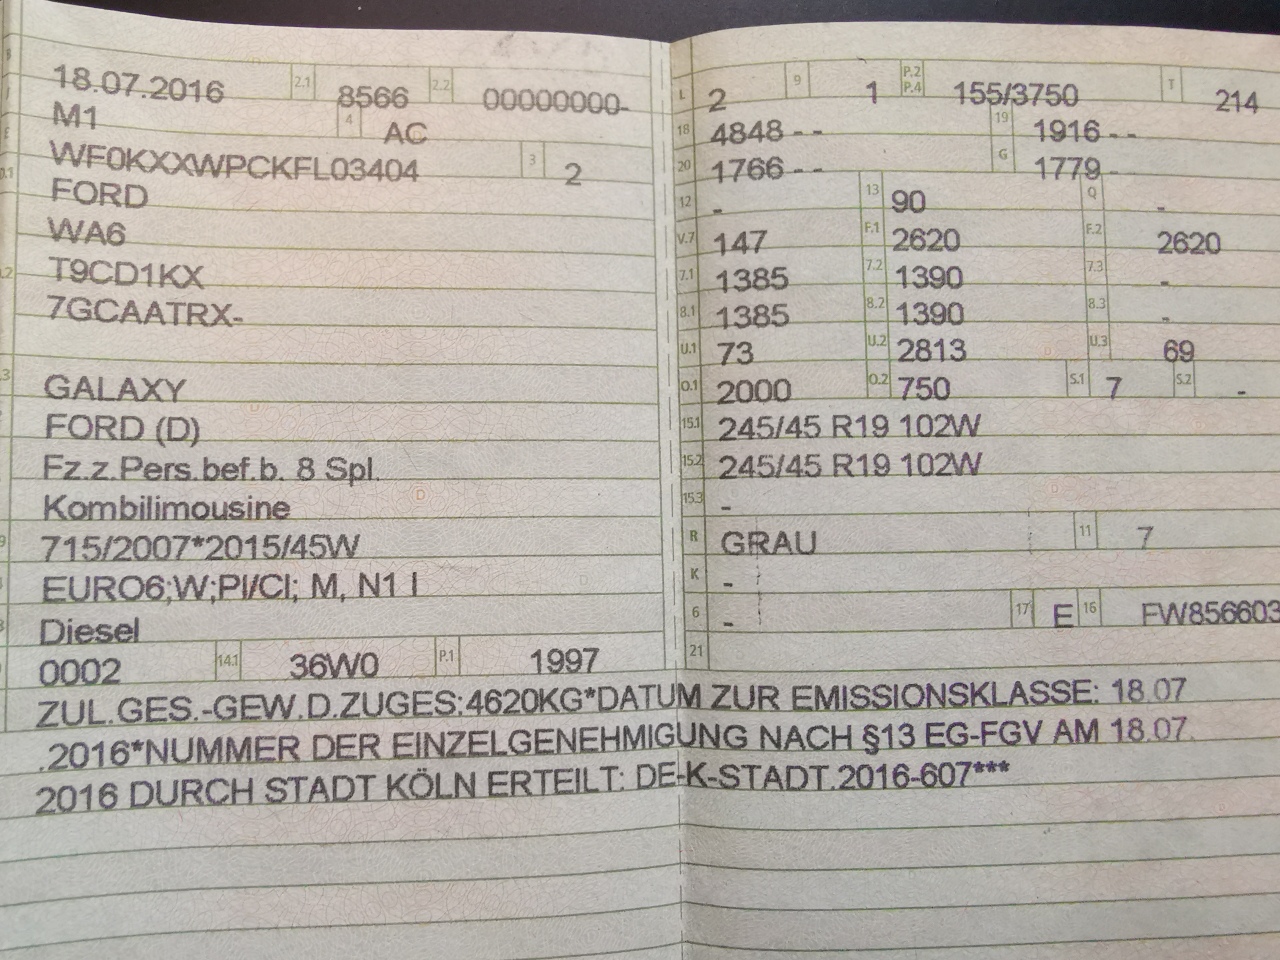 18.07.2016 2.1 8566 2.2 00000000-
M1 4 AC
WF0KXXWPCKFL03404 3 2
FORD
WA6
T9CD1KX
7GCAATRX-
GALAXY
FORD (D)
Fz.z.Pers.bef.b. 8 Spl.
Kombilimousine
715/2007*2015/45W
EURO6;W;PI/CI; M, N1 I
Diesel
0002 14.1 36W0 P.1 1997
L 2 9 1 P.2 P.4 155/3750 T 214
18 4848 - - 19 1916 - -
20 1766 - - G 1779 -
12 - 13 90 Q -
V.7 147 F.1 2620 F.2 2620
7.1 1385 7.2 1390 7.3 -
8.1 1385 8.2 1390 8.3 -
U.1 73 U.2 2813 U.3 69
O.1 2000 O.2 750 S.1 7 S.2 -
15.1 245/45 R19 102W
15.2 245/45 R19 102W
15.3 -
R GRAU 11 7
K -
6 - 17 E 16 FW856603
21
ZUL.GES.-GEW.D.ZUGES:4620KG*DATUM ZUR EMISSIONSKLASSE: 18.07
.2016*NUMMER DER EINZELGENEHMIGUNG NACH §13 EG-FGV AM 18.07.
2016 DURCH STADT KÖLN ERTEILT: DE-K-STADT.2016-607***